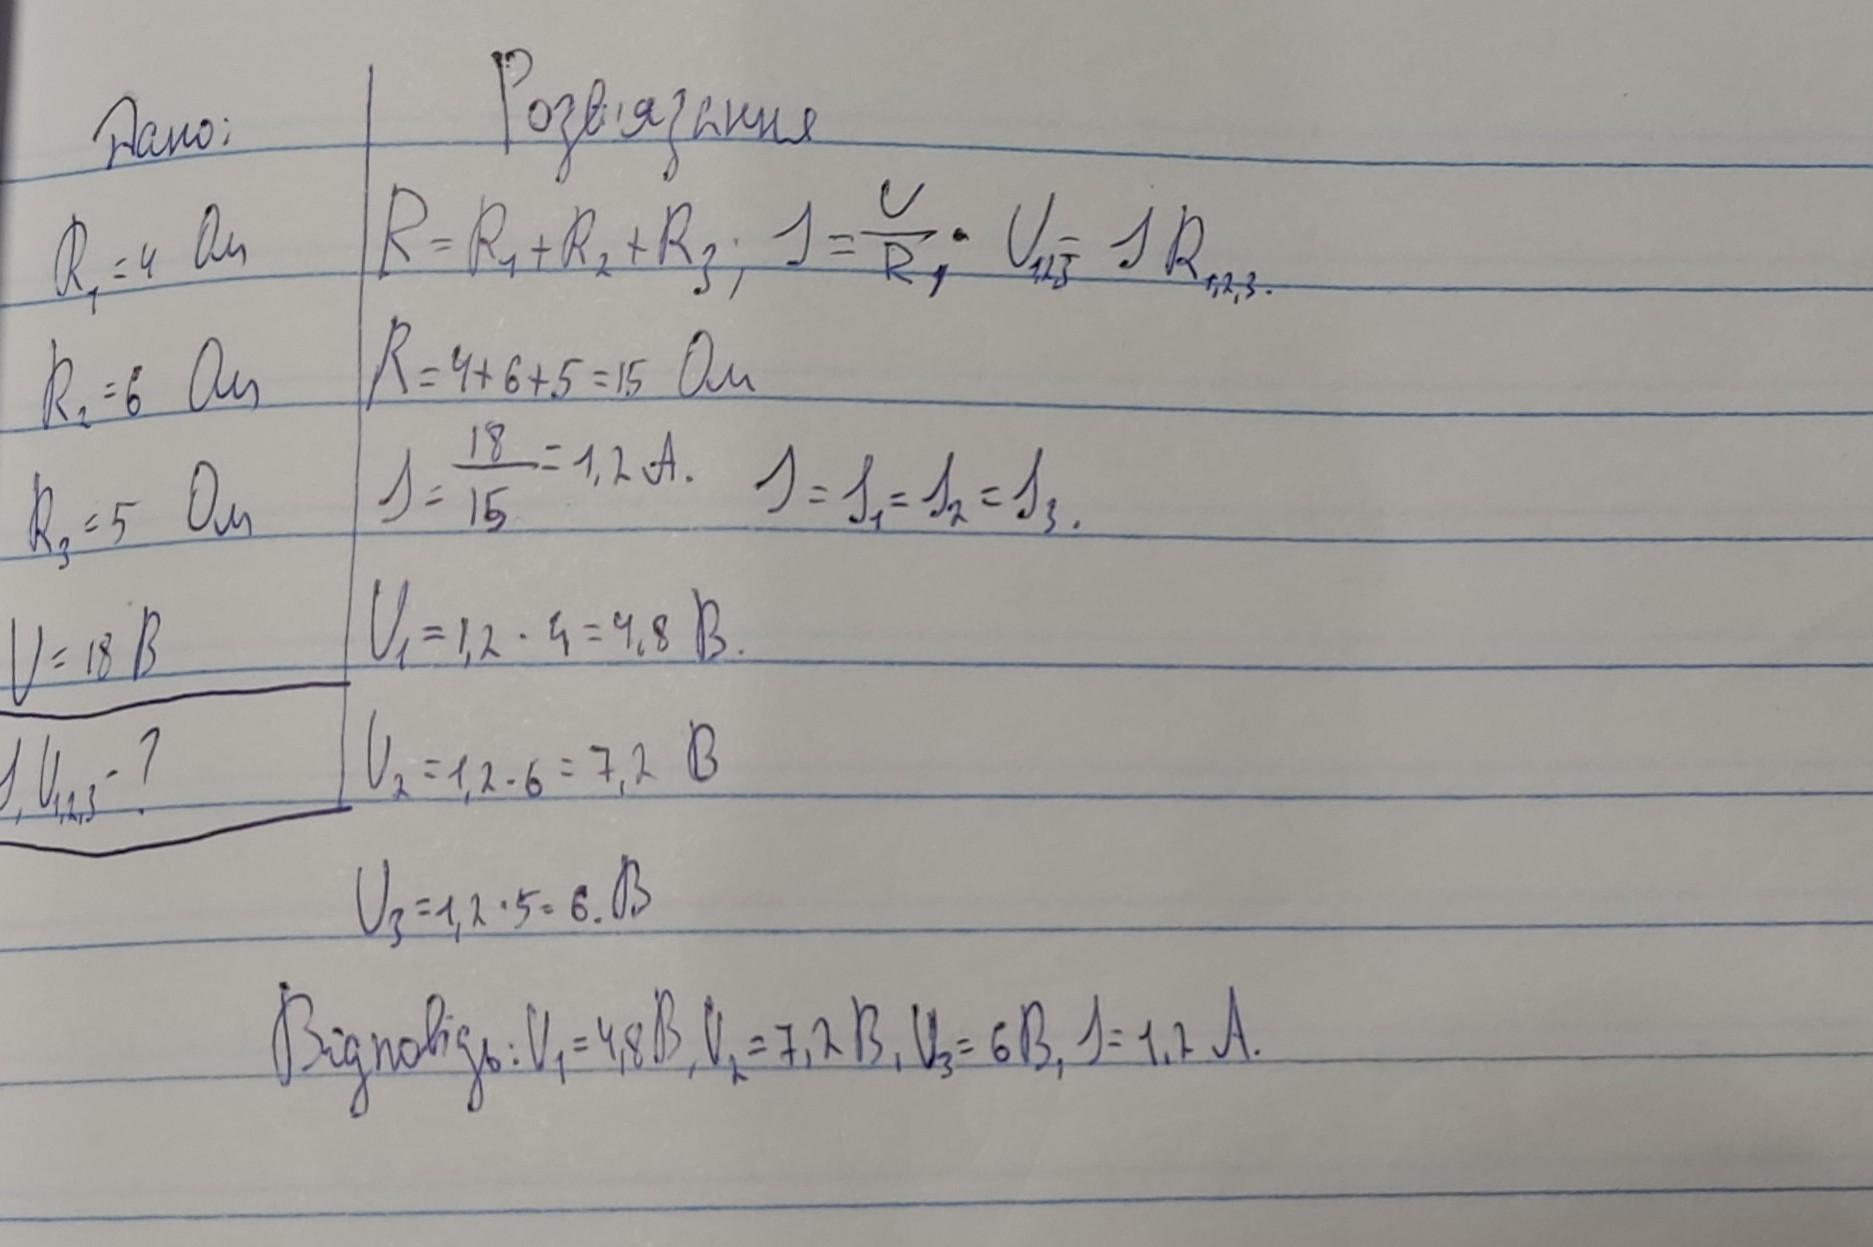 Дано:
R₁=4 Ом
R₂=6 Ом
R₃=5 Ом
U=18 В
I, U₁,₂,₃ - ?
Розв'язання
R=R₁+R₂+R₃; I=U/R, U₁,₂,₃= I R₁,₂,₃.
R=4+6+5=15 Ом
I=18/15=1,2 А. I=I₁=I₂=I₃.
U₁=1,2·4=4,8 В.
U₂=1,2·6=7,2 В
U₃=1,2·5=6. В
Відповідь: U₁=4,8В, U₂=7,2В, U₃=6В, I=1,2 А.